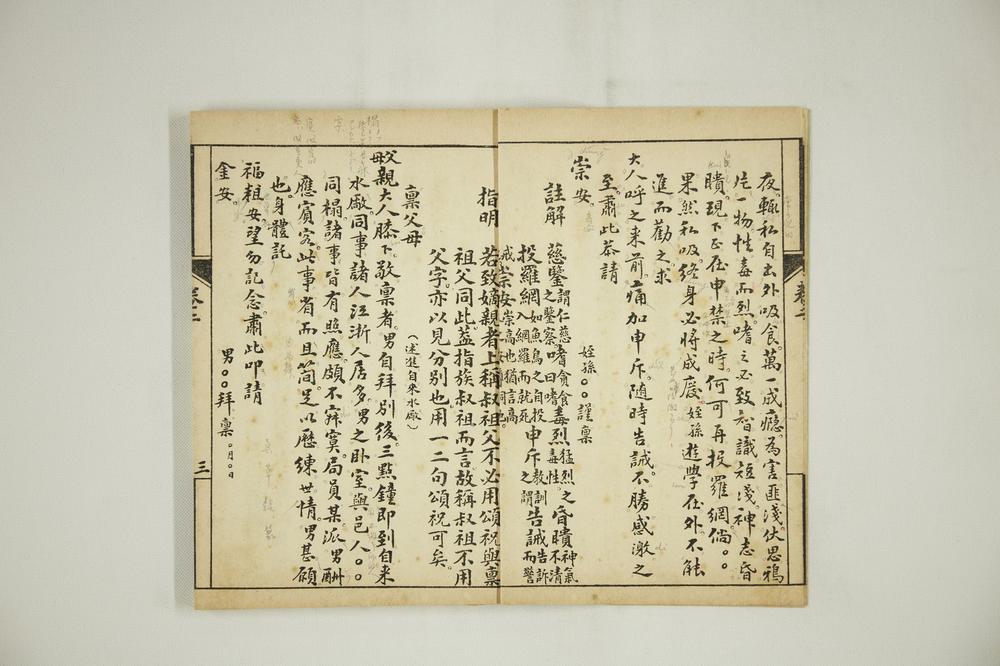 夜。輒私自出外吸食。萬一成癮。為害匪淺。伏思鴉
片一物。性毒而烈。嗜之必致智識短淺。神志昏
瞶。現下正在申禁之時。何可再投羅網。倘○○
果然私吸。終身必將成廢。姪孫遊學在外。不能
進而勸之。求
大人呼之來前。痛加申斥。隨時告誡。不勝感激之
至。肅此恭請
崇安。
姪孫○○謹稟
註解
慈鑒謂仁慈之鑒察嗜食貪食曰嗜毒烈猛烈之毒性昏瞶神氣不清
投羅網如魚鳥之自投入網羅而就死申斥教訓之謂告誡告訴而警
戒崇安崇高也猶言高
指明
若致嫡親者上稱叔祖父不必用頌祝與稟
祖父同此。蓋指族叔祖而言故稱叔祖不用
父字。亦以見分別也。用一二句頌祝可矣。
稟父母
(述進自來水廠)
父母親大人膝下。敬稟者。男自拜別後。三點鐘即到自來
水廠。同事諸人江浙人居多。男之卧室與邑人○○
同榻。諸事皆有照應。頗不寂寞。局員某派男酬
應賓客。此事省而且簡。足以歷練世情。男甚願
也。身體託
福粗安。望勿記念。肅此叩請
金安。
男○○拜稟○月○日
卷二
三